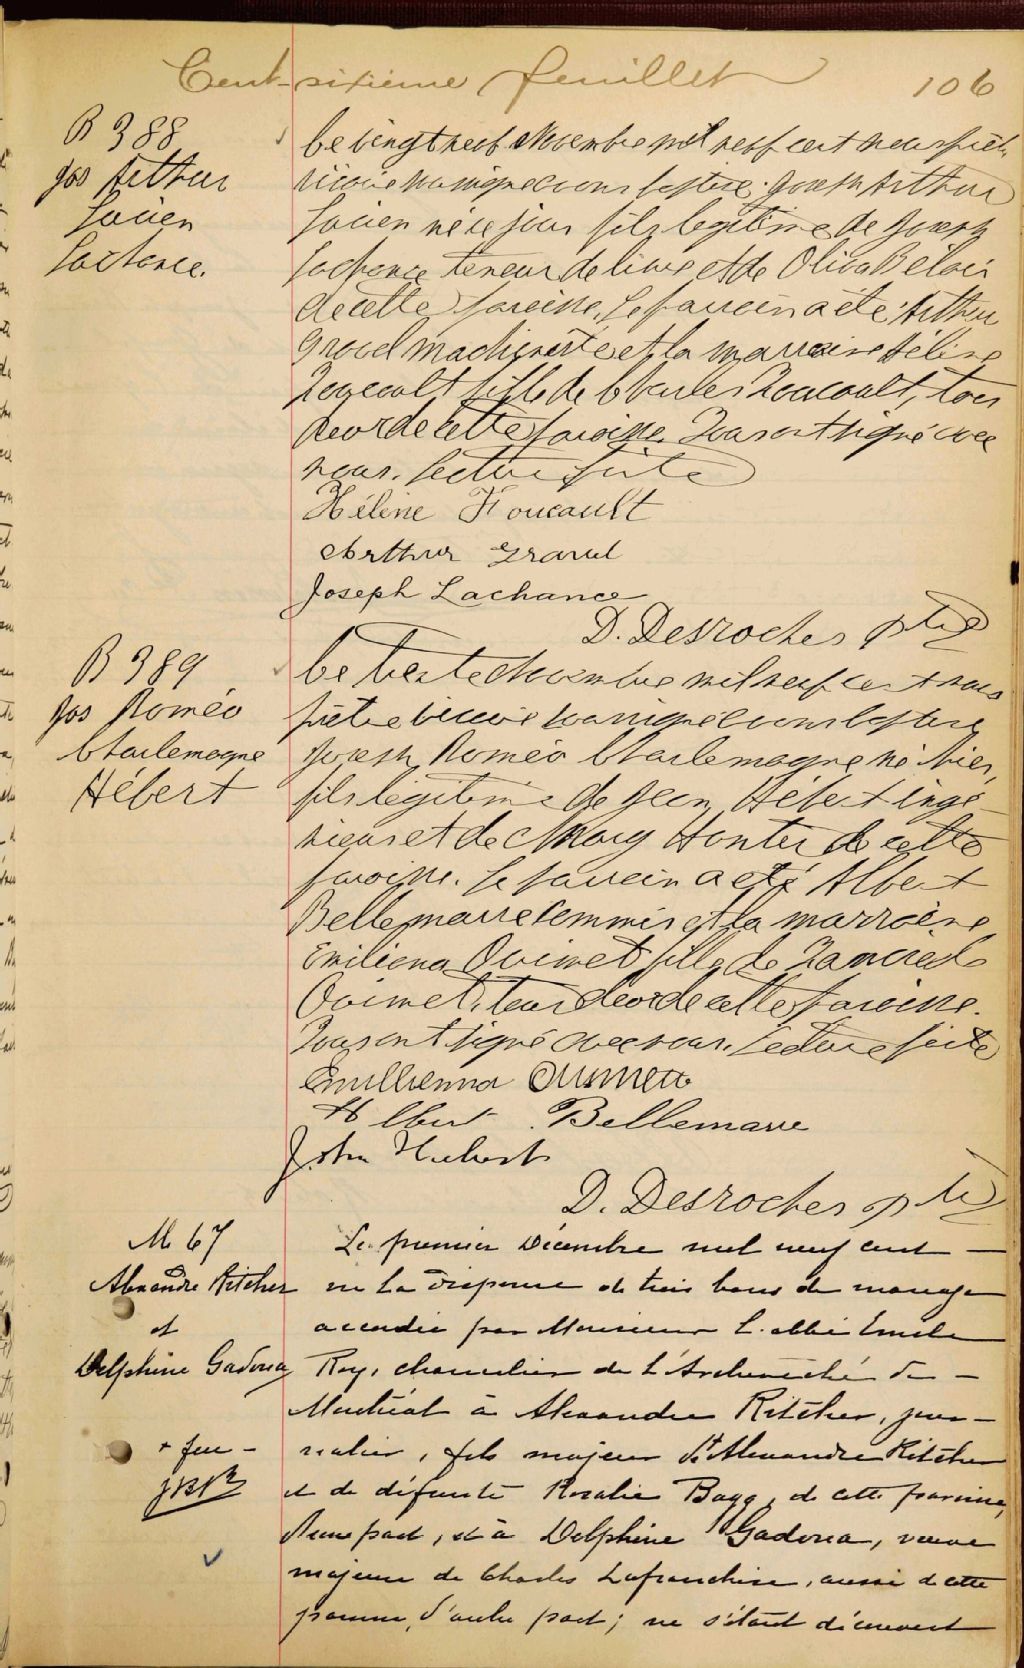 Cent-sixième feuillet 106
B 388
Jos Arthur
Lucien
Lachance.
Le vingt neuf Novembre mil neuf cent nous prêtre
vicaire soussigné avons baptisé Joseph Arthur
Lucien né ce jour fils légitime de Joseph
Lachance teneur de livre et de Oliva Bélair
de cette paroisse. Le parrain a été Arthur
Gravel machiniste et la marraine Hélène
Foucault fille de Charles Foucault, tous
deux de cette paroisse. Tous ont signé avec
nous. Lecture faite
Hélène Foucault
Arthur Gravel
Joseph Lachance
D. Desroches ptre
B 389
Jos Roméo
Charlemagne
Hébert
Le trente Novembre mil neuf cent nous
prêtre vicaire soussigné avons baptisé
Joseph Roméo Charlemagne né hier,
fils légitime de Jean Hébert ingé-
nieur et de Mary Hunter de cette
paroisse. Le parrain a été Albert
Bellemarre commis et la marraine
Emiliena Ouimet fille de Tancrede
Ouimet, tous deux de cette paroisse.
Tous ont signé avec nous. Lecture faite
Emillienna Ouimette
Albert Bellemare
John Hubert
D. Desroches ptre
M 67
Alexandre Ritcher
et
Delphine Gadoua
+ feu -
Le premier Décembre mil neuf cent —
vu la dispense de trois bans de mariage
accordée par Monsieur l'abbé Emile
Roy, chancelier de l'Archevêché de —
Montréal à Alexandre Ritcher, jour-
nalier, fils majeur d'+Alexandre Ritcher
et de défunte Rosalie Bagg, de cette paroisse,
d'une part, et à Delphine Gadoua, veuve
majeure de Charles Lafranchise, aussi de cette
paroisse, d'autre part; ne s'étant découvert